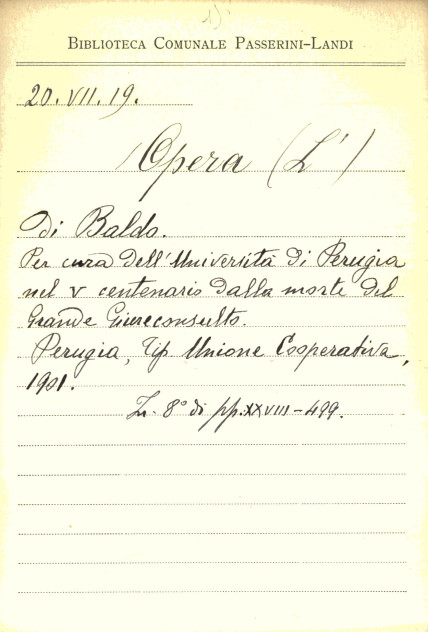 BIBLIOTECA COMUNALE PASSERINI-LANDI
20. VII. 19.
Opera (L')
di Baldo.
Per cura dell'Università di Perugia
nel V centenario dalla morte del
Grande Giureconsulto.
Perugia, Tip. Unione Cooperativa,
1901.
In 8° di pp. XXVIII-499.